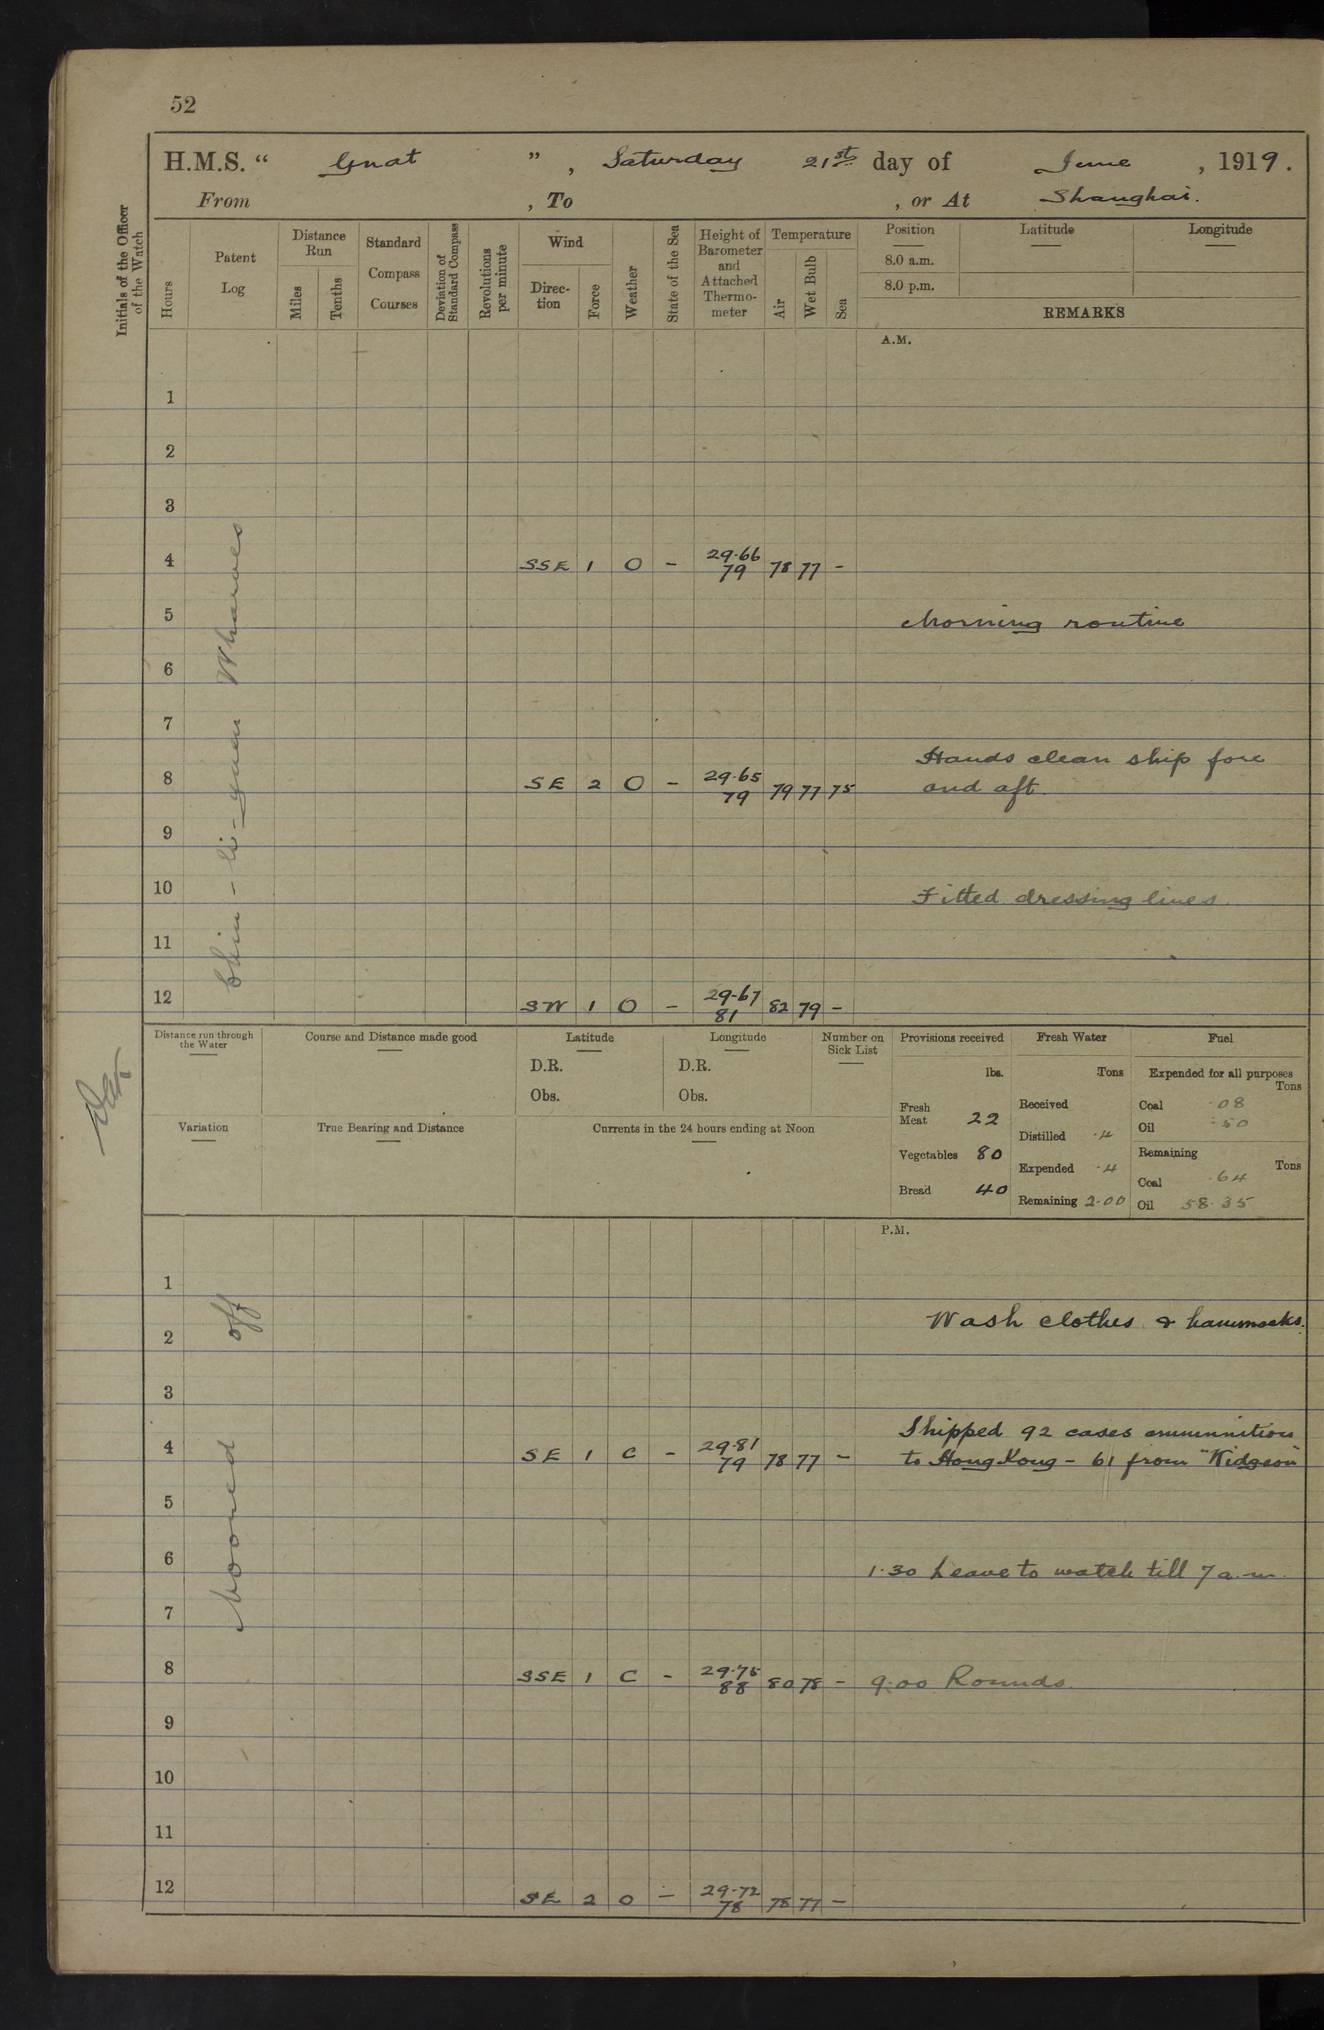 52
H.M.S. “ Gnat ” , Saturday 21st day of June , 1919.
From , To , or At Shanghai.
Initials of the Officer of the Watch
Hours
Patent Log
Distance Run
Miles
Tenths
Standard Compass Courses
Deviation of Standard Compass
Revolutions per minute
Wind
Direction
Force
Weather
State of the Sea
Height of Barometer and Attached Thermometer
Temperature
Air
Wet Bulb
Sea
Position Latitude Longitude
8.0 a.m.
8.0 p.m.
REMARKS
A.M.
1
2
3
4 SSE 1 O - 29.66 79 78 77 -
5 Morning routine
6
7
Hands clean ship fore
8 SE 2 O - 29.65 79 79 77 75 and aft.
9
10 Fitted dressing lines.
11
12 SW 1 O - 29.67 81 82 79 -
Moored off Chin-li-yuen Wharves
Distance run through the Water
Course and Distance made good
Latitude
D.R.
Obs.
Longitude
D.R.
Obs.
Number on Sick List
Variation
True Bearing and Distance
Currents in the 24 hours ending at Noon
Provisions received
lbs.
Fresh Meat 22
Vegetables 80
Bread 40
Fresh Water
Tons
Received
Distilled .4
Expended .4
Remaining 2.00
Fuel
Expended for all purposes
Tons
Coal .08
Oil .50
Remaining
Tons
Coal .64
Oil 58.35
P.M.
1
Wash clothes & hammocks.
2
3
Shipped 92 cases ammunition
4 SE 1 C - 29.81 79 78 77 - to Hong Kong - 61 from "Widgeon"
5
6 1.30 Leave to watch till 7 a.m.
7
8 SSE 1 C - 29.75 88 80 78 - 9.00 Rounds.
9
10
11
12 SE 2 O - 29.72 78 78 77 -